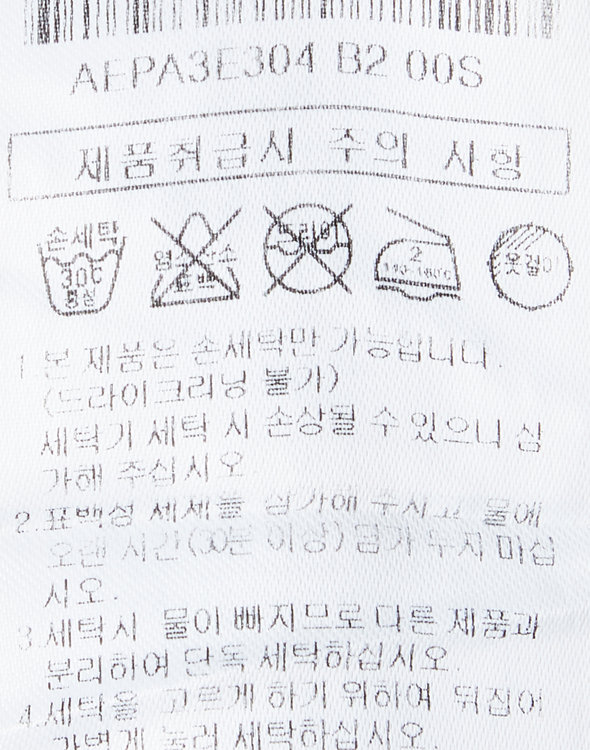 AEPA3E304 B2 00S
제품취급시 주의 사항
손세탁
30℃
중성
염소
표백
드라이
2
140-160℃
옷걸이
1 본 제품은 손세탁만 가능합니다.
(드라이크리닝 불가)
세탁기 세탁 시 손상될 수 있으니 삼
가해 주십시오
2. 표백성 세제를 삼가해 주시고 물에
오랜 시간(30분 이상) 담가 두지 마십
시오.
3 세탁시 물이 빠지므로 다른 제품과
분리하여 단독 세탁하십시오.
4. 세탁을 고르게 하기 위하여 뒤집어
가볍게 눌러 세탁하십시오